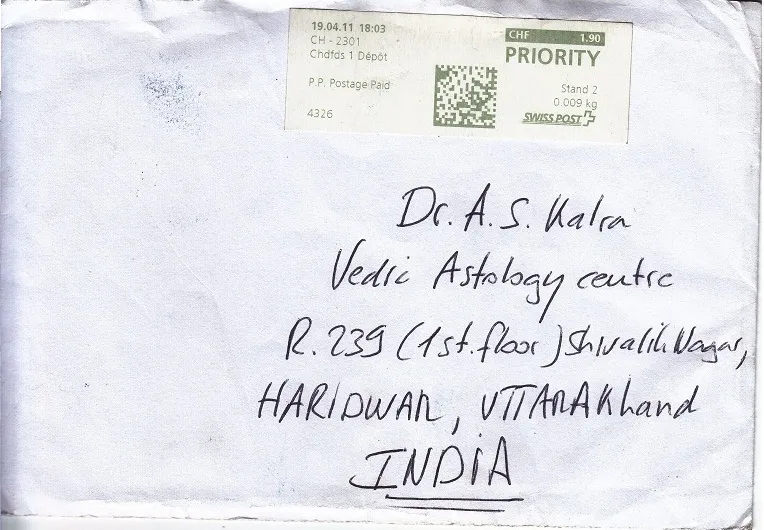 19.04.11 18:03
CH - 2301
Chdfds 1 Dépôt
P.P. Postage Paid
4326
CHF 1.90
PRIORITY
Stand 2
0.009 kg
SWISS POST
Dr. A. S. Kalra
Vedic Astology centre
R. 239 (1st. floor) Shivalik Nagar,
HARIDWAR, UTTARAKhand
INDIA